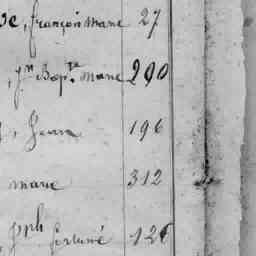 françois marie 27
, jn Bapte marie 290
, Jean 196
marie 312
, jph fortuné 126